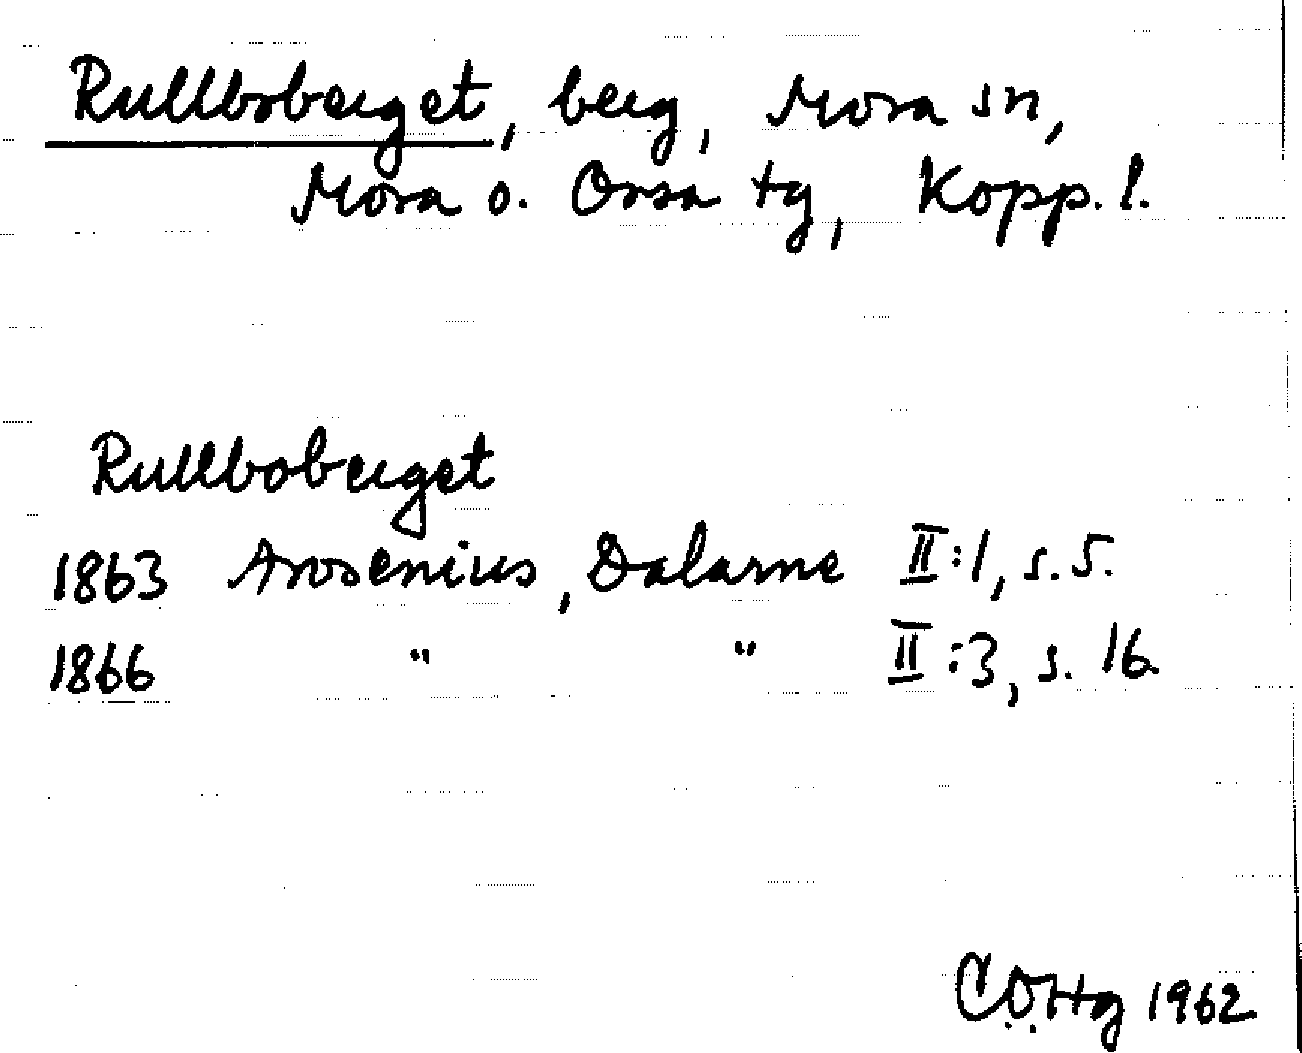 Rullboberget, berg, Mora sn,
Mora o. Orsa tg, Kopp. l.
Rullboberget
1863 Arosenius, Dalarne II:1, s. 5.
1866 " " II:3, s. 16.
1962